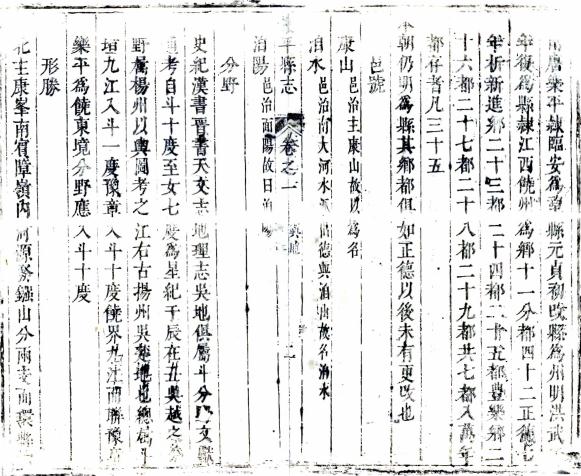 南唐樂平隸臨安為望縣元貞初改縣為州明洪武
年復為縣隸江西饒州為鄉十一分都四十二正德七
年析新進鄉二十三都二十四都二十五都豐樂鄉二
十六都二十七都二十八都二十九都共七都入萬年
都存者凡三十五
本朝仍明為縣其鄉都俱如正德以後未有更改也
邑號
康山 邑治主康山故以為名
洎水 邑治南大河水 德興洎山故名洎水
平縣志 卷之一 輿地 二
洎陽 邑治面陽故曰洎
分野
史紀漢書晉書天文志地理志吳地俱屬斗分 文獻
通考自斗十度至女七度為星紀于辰在丑吳越之
野屬揚州以輿圖考之江右古揚州吳楚地也總屬
垣九江入斗一度豫章入斗十度饒界九江南聯豫章
樂平為饒東境分野應入斗十度
形勝
北主康峯南賓障嶺內 河源發 山分兩支面環縣